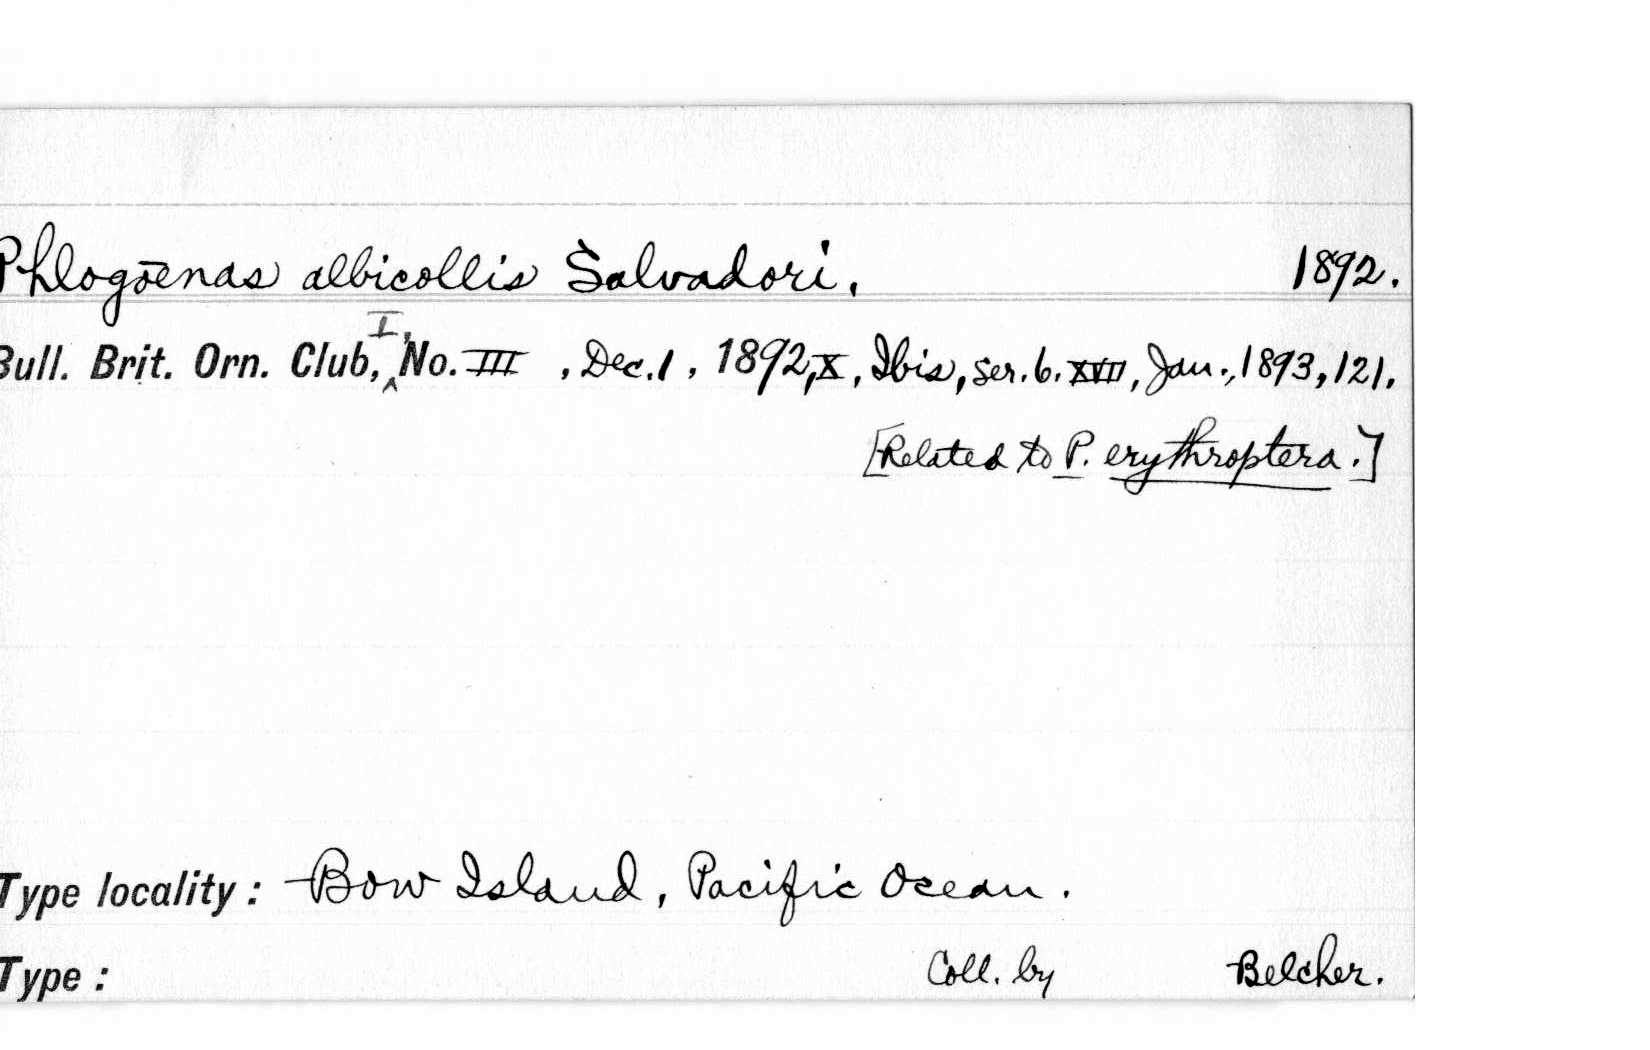 Phlogœnas albicollis Salvadori, 1892.
Bull. Brit. Orn. Club, I, No. III, Dec. 1, 1892, X, Ibis, ser. 6. XVII, Jan., 1893, 121.
[Related to P. erythroptera.]
Type locality: Bow Island, Pacific Ocean.
Type: Coll. by Belcher.